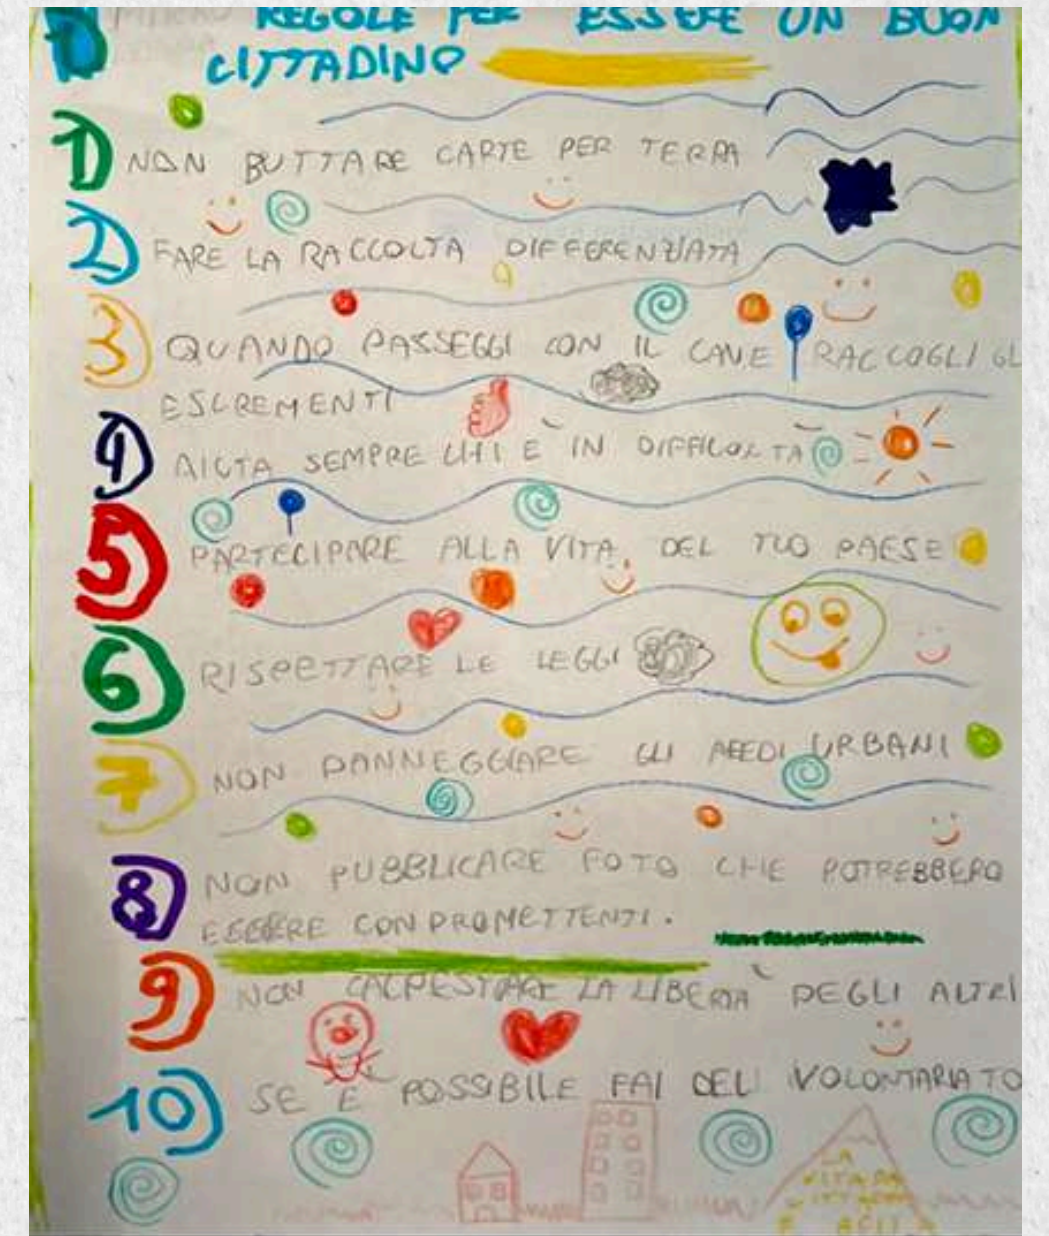 REGOLE PER ESSERE UN BUON
CITTADINO
1) NON BUTTARE CARTE PER TERRA
2) FARE LA RACCOLTA DIFFERENZIATA
3) QUANDO PASSEGGI CON IL CANE RACCOGLI GL
ESCREMENTI
4) AIUTA SEMPRE CHI È IN DIFFICOLTÀ
5) PARTECIPARE ALLA VITA DEL TUO PAESE
6) RISPETTARE LE LEGGI
7) NON DANNEGGIARE GLI AREDI URBANI
8) NON PUBBLICARE FOTO CHE POTREBBERO
ESSERE CONPROMETTENTI.
9) NON CALPESTARE LA LIBERTÀ DEGLI ALTRI
10) SE È POSSIBILE FAI DEL VOLONTARIATO
LA
VITA DA